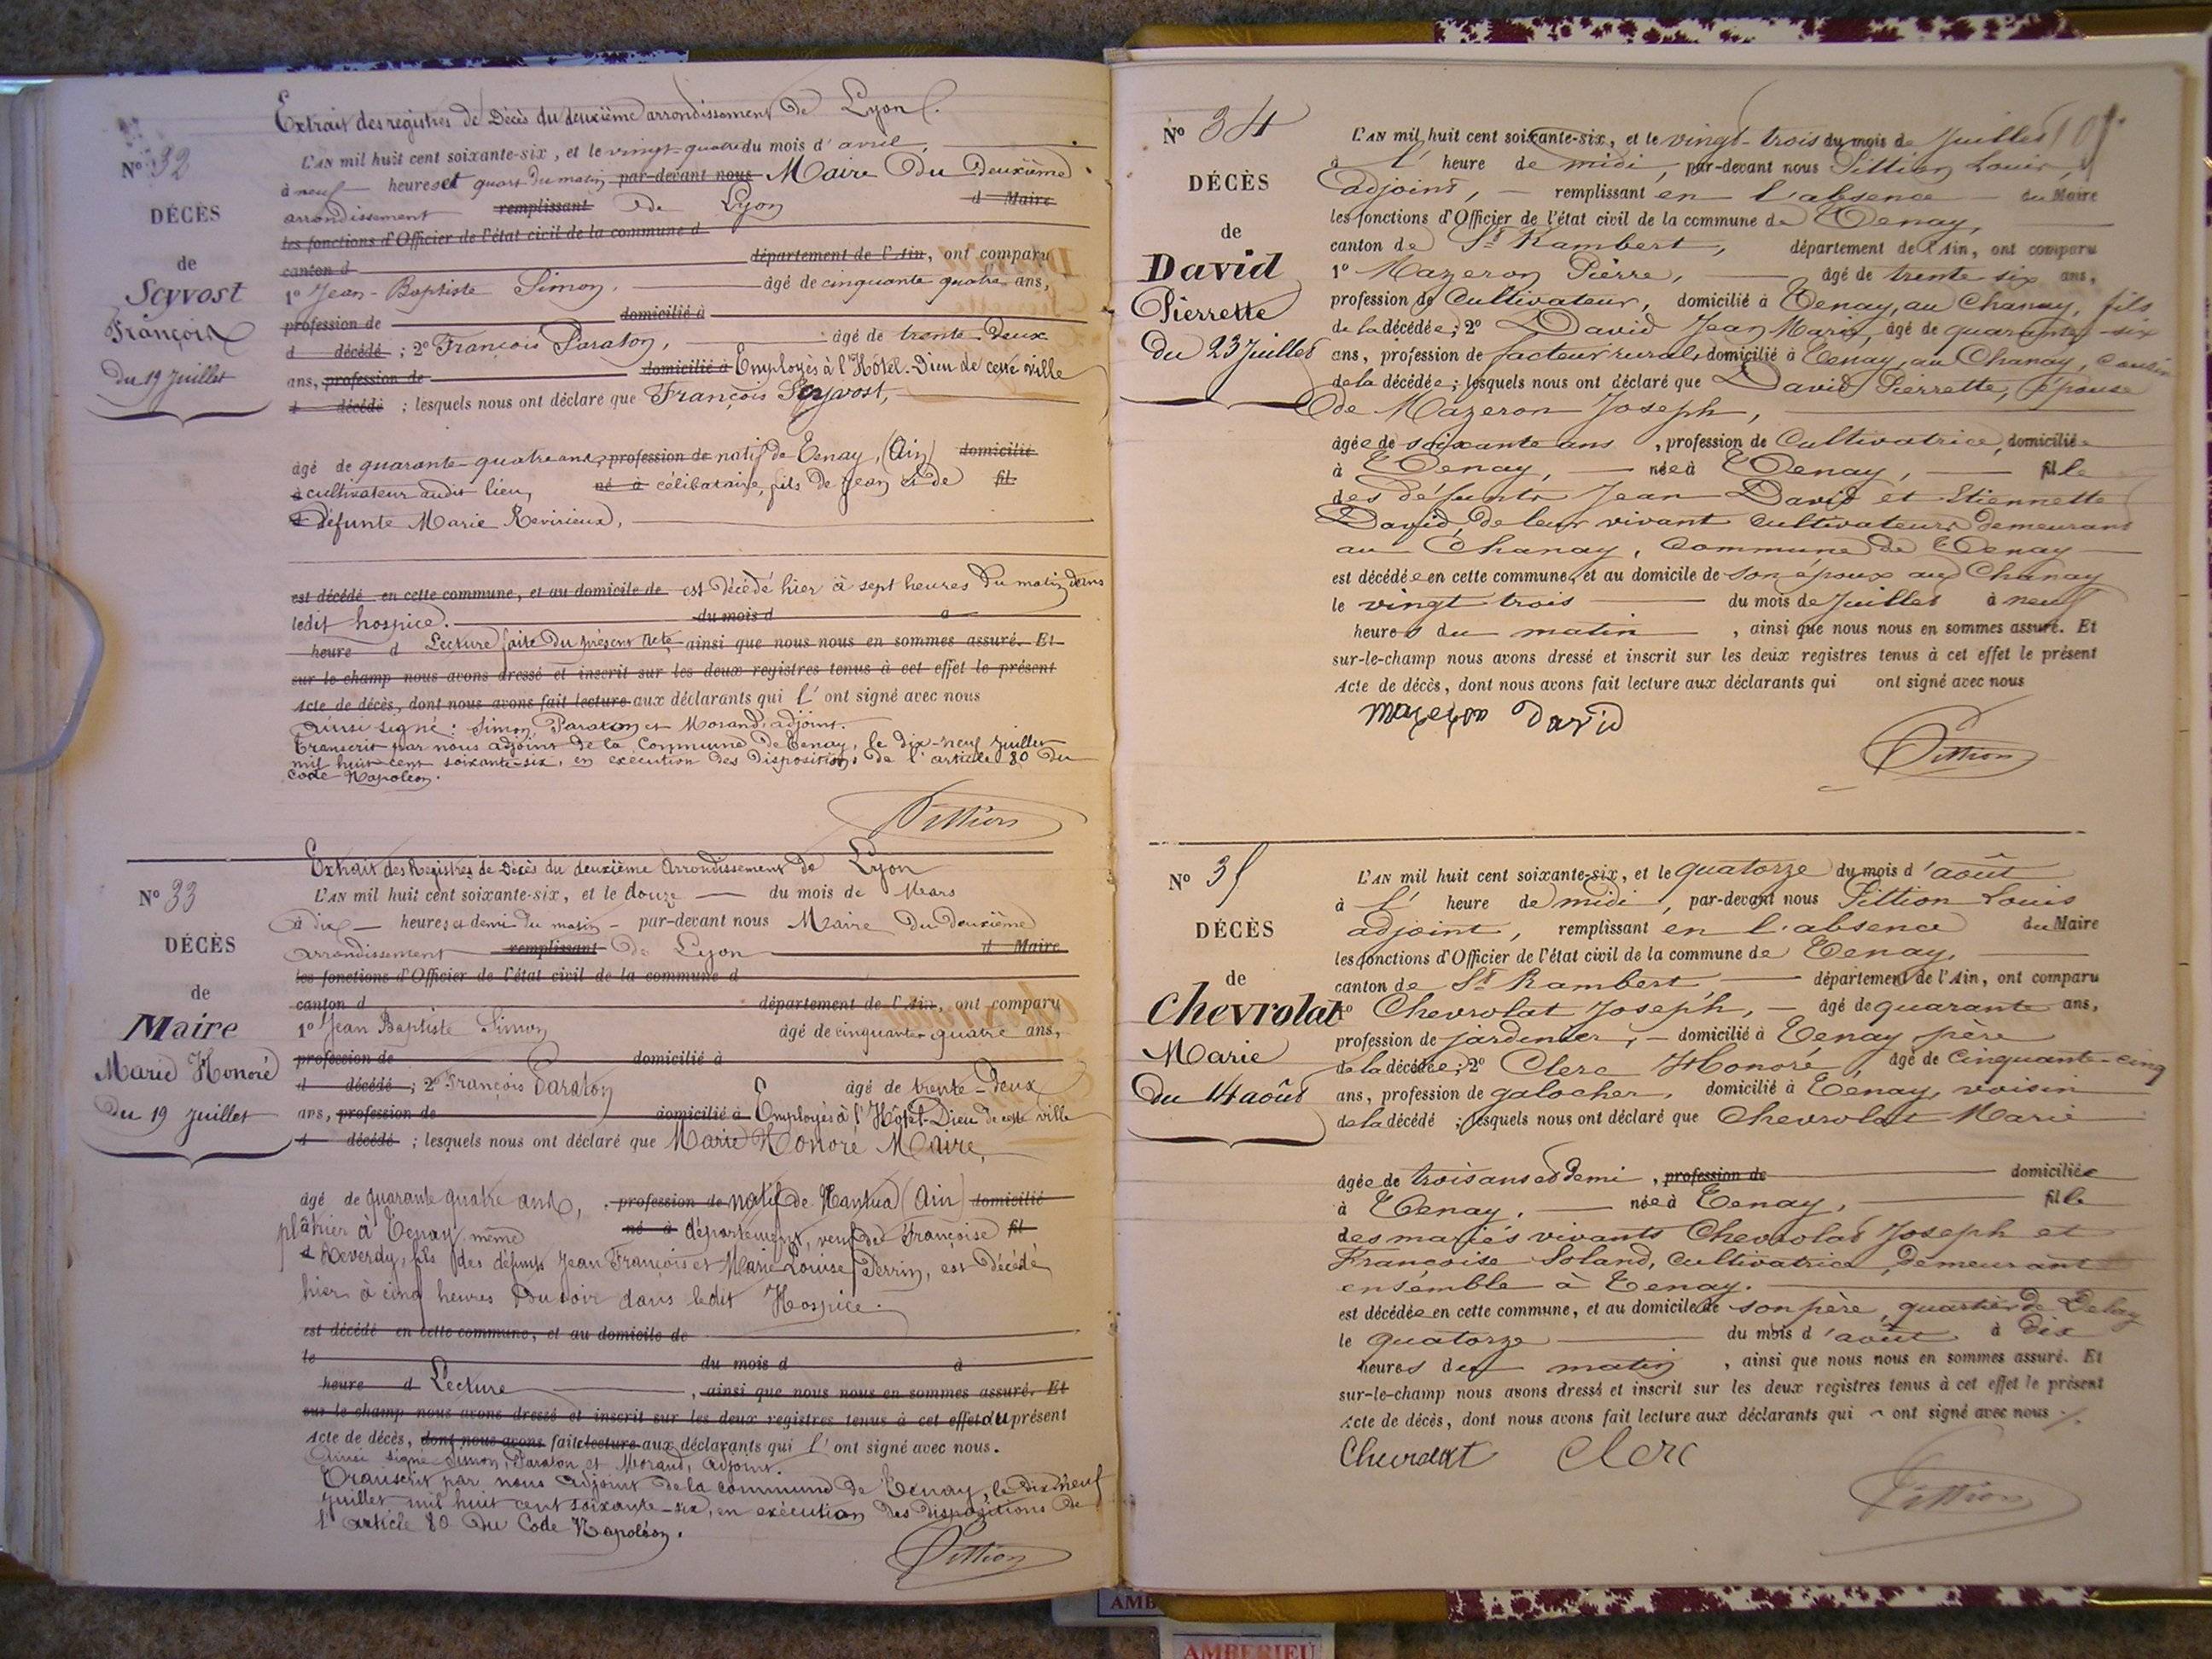 Extrait des registres de Décès du deuxième arrondissement de Lyon.
N° 32
DÉCÈS
de
Scyvost
François
Du 19 Juillet
L'AN mil huit cent soixante-six, et le vingt-quatre du mois d'avril,
à neuf heures et quart du matin par-devant nous Maire Du Deuxième
arrondissement remplissant de Lyon d Maire
les fonctions d'Officier de l'état civil de la commune d
canton d département de l'Ain, ont comparu
1° Jean-Baptiste Simon, âgé de cinquante quatre ans,
profession de domicilié à
d décédé ; 2° François Paraton, âgé de trente-Deux
ans, profession de domicilié à Employés à l'Hôtel-Dieu de cette ville
d décédé ; lesquels nous ont déclaré que François Scyvost,
âgé de quarante-quatre ans, profession de natif de Tenay, (Ain) domicilié
à cultivateur audit lieu, né à célibataire, fils de Jean et de fil
d Défunte Marie Revirieux,
est décédé en cette commune, et au domicile de est Décédé hier à sept heures du matin dans
ledit hospice. du mois d à
heure d Lecture faite Du présent Acte ainsi que nous nous en sommes assuré. Et
sur-le-champ nous avons dressé et inscrit sur les deux registres tenus à cet effet le présent
Acte de décès, dont nous avons fait lecture aux déclarants qui l'ont signé avec nous
Ainsi signé : Simon, Paraton et Morand, adjoint.
Transcrit par nous adjoint de la Commune De Tenay, le dix-neuf Juillet
mil huit cent soixante-six, en exécution Des Dispositions De l'article 80 Du
Code Napoléon.
Pittion
Extrait des Registres de Décès du deuxième Arrondissement de Lyon
N° 33
DÉCÈS
de
Maire
Marie Honoré
Du 19 Juillet
L'AN mil huit cent soixante-six, et le douze du mois de Mars
à dix heures et demi du matin par-devant nous Maire Du Deuxième
arrondissement remplissant de Lyon d Maire
les fonctions d'Officier de l'état civil de la commune d
canton d département de l'Ain, ont comparu
1° Jean Baptiste Simon âgé de cinquante-quatre ans,
profession de domicilié à
d décédé ; 2° François Paraton âgé de trente-Deux
ans, profession de domicilié à Employés à l'Hôtel-Dieu de cette ville
d décédé ; lesquels nous ont déclaré que Marie Honoré Maire,
âgé de quarante quatre ans, profession de natif de Nantua (Ain) domicilié
plâtrier à Tenay, même né à département, veuf de Françoise fil
d Reverdy, fils des défunts Jean François et Marie Louise Perrin, est Décédé
hier à cinq heures Du soir dans ledit Hospice.
est décédé en cette commune, et au domicile de
le du mois d à
heure d Lecture , ainsi que nous nous en sommes assuré. Et
sur-le-champ nous avons dressé et inscrit sur les deux registres tenus à cet effet du présent
Acte de décès, dont nous avons faite lecture aux déclarants qui l'ont signé avec nous.
Ainsi signé Simon, Paraton et Morand, Adjoint.
Transcrit par nous Adjoint de la commune de Tenay, le dix neuf
Juillet mil huit cent soixante-six, en exécution Des Dispositions De
l'article 80 Du Code Napoléon.
Pittion
N° 34
DÉCÈS
de
David
Pierrette
Du 23 Juillet
L'AN mil huit cent soixante-six, et le vingt-trois du mois de Juillet
à l' heure de midi, par-devant nous Pittion Louis,
adjoint, remplissant en l'absence du Maire
les fonctions d'Officier de l'état civil de la commune de Tenay,
canton de St Rambert, département de l'Ain, ont comparu
1° Mazeron Pierre, âgé de trente six ans,
profession de Cultivateur, domicilié à Tenay, au Chanay, fils
de la décédée ; 2° David Jean Marie, âgé de quarante-six
ans, profession de facteur rural, domicilié à Tenay, au Chanay, cousin
de la décédée ; lesquels nous ont déclaré que David Pierrette, épouse
de Mazeron Joseph,
âgée de soixante ans , profession de Cultivatrice, domiciliée
à Tenay, née à Tenay, fille
des défunts Jean David et Etiennette
David, de leur vivant cultivateurs demeurant
au Chanay, Commune de Tenay
est décédée en cette commune, et au domicile de son époux au Chanay
le vingt trois du mois de Juillet à neuf
heures du matin , ainsi que nous nous en sommes assuré. Et
sur-le-champ nous avons dressé et inscrit sur les deux registres tenus à cet effet le présent
Acte de décès, dont nous avons fait lecture aux déclarants qui ont signé avec nous
Mazeron David
Pittion
N° 35
DÉCÈS
de
Chevrolat
Marie
Du 14 août
L'AN mil huit cent soixante-six, et le quatorze du mois d'août
à l' heure de midi, par-devant nous Pittion Louis
adjoint, remplissant en l'absence du Maire
les fonctions d'Officier de l'état civil de la commune de Tenay,
canton de St Rambert, département de l'Ain, ont comparu
1° Chevrolat Joseph, âgé de quarante ans,
profession de jardinier, domicilié à Tenay père
de la décédée ; 2° Clerc Honoré, âgé de Cinquante-cinq
ans, profession de galocher, domicilié à Tenay, voisin
de la décédé ; lesquels nous ont déclaré que Chevrolat Marie
âgée de trois ans et demi , profession de domiciliée
à Tenay, née à Tenay, fille
des mariés vivants Chevrolat Joseph et
Françoise Soland, cultivatrice, demeurant
ensemble à Tenay.
est décédée en cette commune, et au domicile de son père, quartier de
le quatorze du mois d'août à dix
heures du matin , ainsi que nous nous en sommes assuré. Et
sur-le-champ nous avons dressé et inscrit sur les deux registres tenus à cet effet le présent
Acte de décès, dont nous avons fait lecture aux déclarants qui ont signé avec nous
Chevrolat Clerc
Pittion
AMB
AMBERIEU